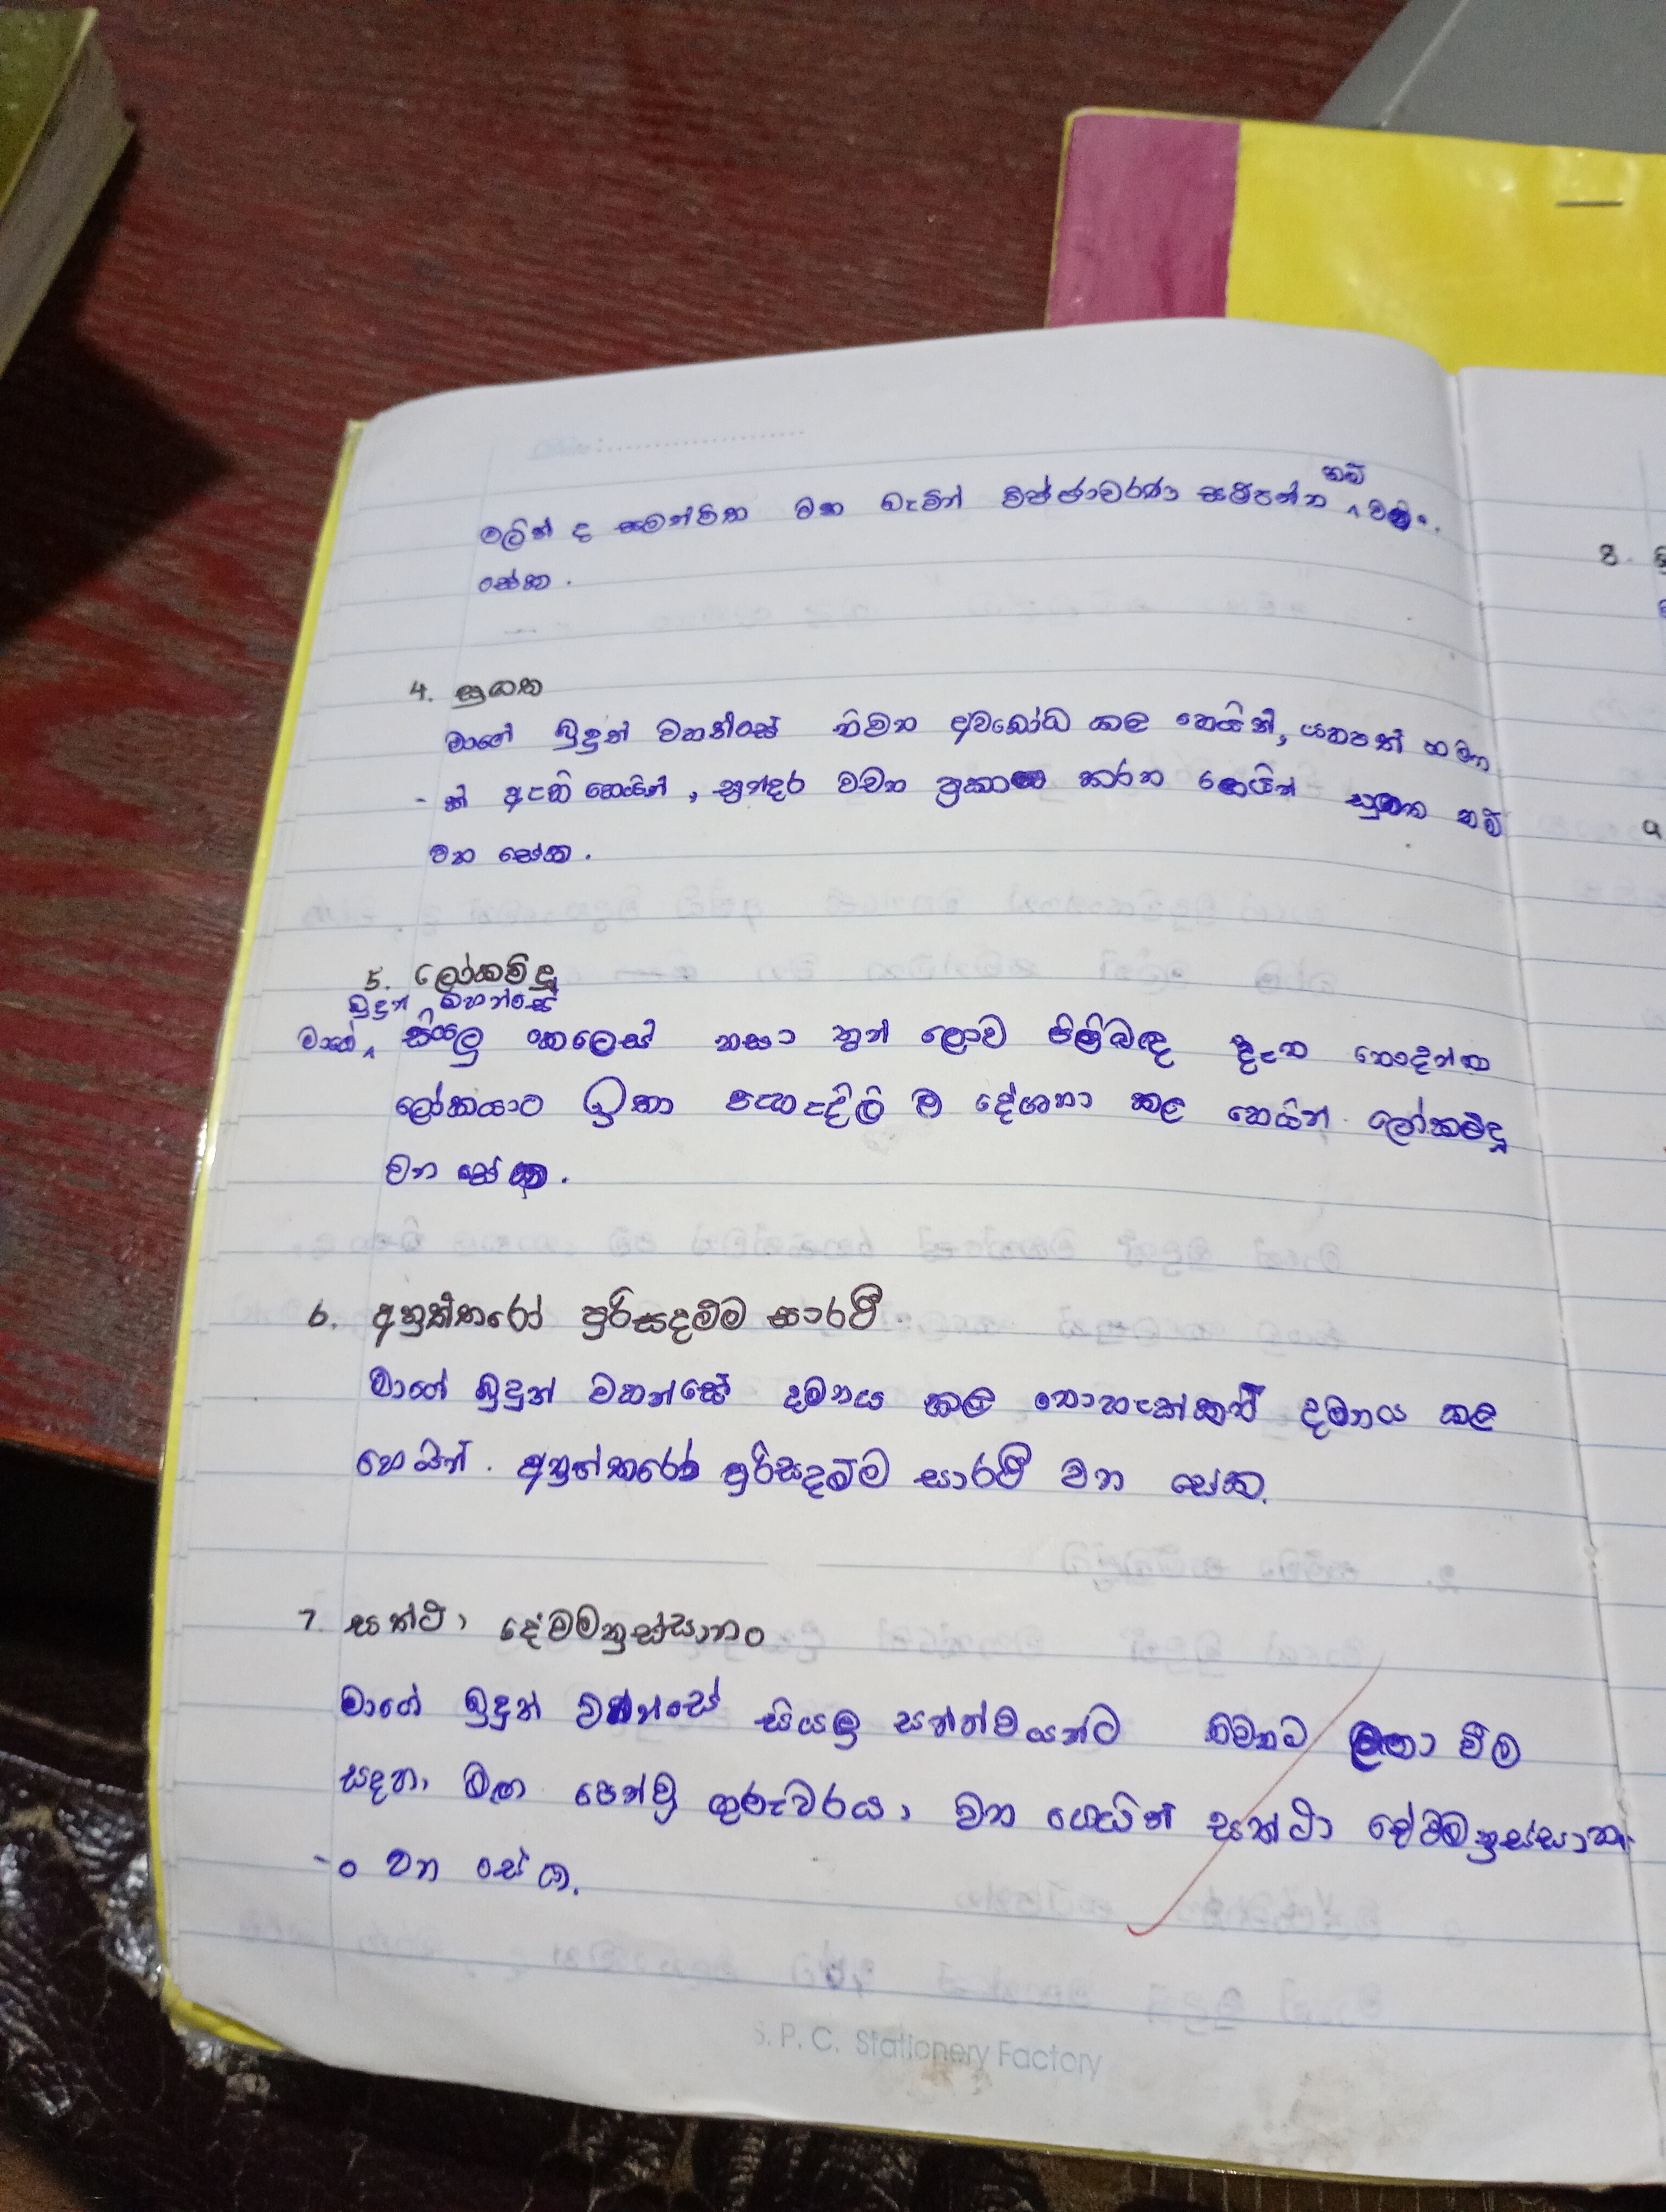 වලින් ද සමන්විත වන බැවින් විජ්ජාචරණ සම්පන්න නම් වන
සේක.
4. සුගත
මාගේ බුදුන් වහන්සේ නිවන අවබෝධ කළ හෙයින්, යහපත් ගම
- න් ඇති හෙයින්, සුන්දර වචන ප්‍රකාශ කරන හෙයින් සුගත නම්
වන සේක.
5. ලෝකවිදූ
බුදුන් වහන්සේ
මාගේ සියලු කෙලෙස් නසා තුන් ලොව පිළිබඳ දැන නොදන්නා
ලෝකයාට ඉතා පැහැදිලි ව දේශනා කළ හෙයින් ලෝකවිදූ
වන සේක.
6. අනුත්තරෝ පුරිසදම්ම සාරථී
මාගේ බුදුන් වහන්සේ දමනය කළ නොහැක්කන් දමනය කළ
හෙයින්. අනුත්තරෝ පුරිසදම්ම සාරථී වන සේක.
7. සත්ථා දේවමනුස්සානං
මාගේ බුදුන් වහන්සේ සියලු සත්ත්වයන්ට නිවනට ළඟා වීම
සදහා මඟ පෙන්වූ ගුරුවරයා වන හෙයින් සත්ථා දේවමනුස්සාන
- ං වන සේක.
8.
9
S. P. C. Stationery Factory